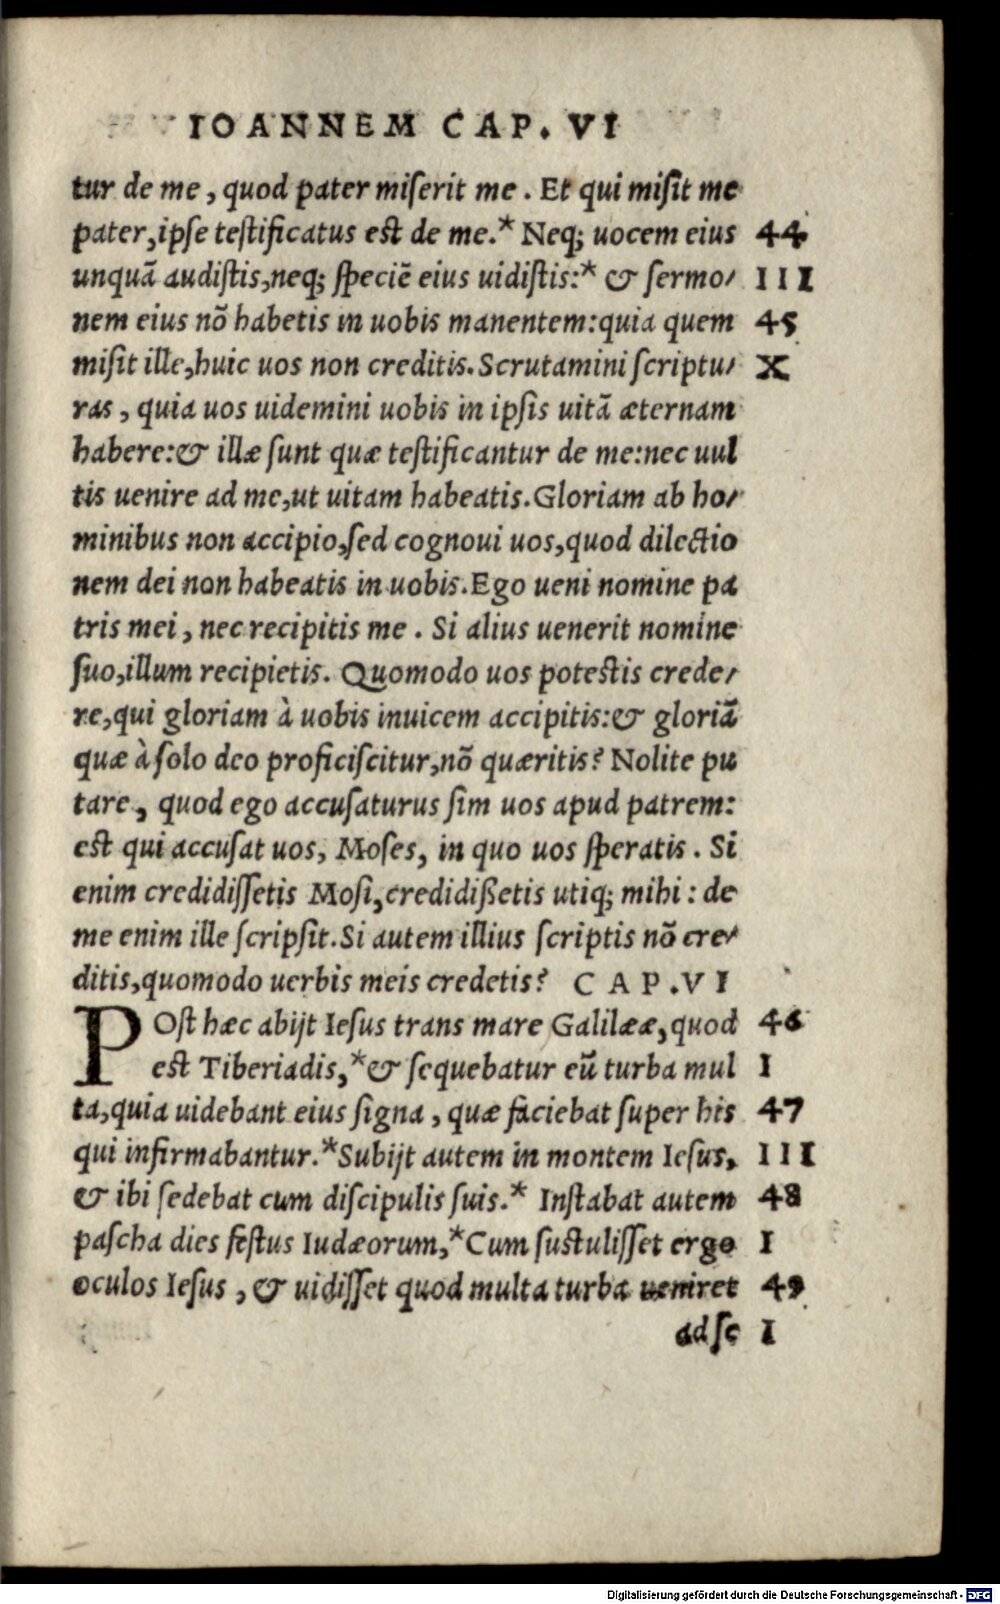 IOANNEM CAP. VI
tur de me, quod pater miserit me. Et qui misit me
pater, ipse testificatus est de me.* Neq; uocem eius 44
unquā audistis, neq; speciē eius uidistis:* & sermo/ III
nem eius nō habetis in uobis manentem: quia quem 45
misit ille, huic uos non creditis. Scrutamini scriptu/ X
ras, quia uos uidemini uobis in ipsis uitā æternam
habere: & illæ sunt quæ testificantur de me: nec uul
tis uenire ad me, ut uitam habeatis. Gloriam ab ho/
minibus non accipio, sed cognoui uos, quod dilectio
nem dei non habeatis in uobis. Ego ueni nomine pa
tris mei, nec recipitis me. Si alius uenerit nomine
suo, illum recipietis. Quomodo uos potestis crede/
re, qui gloriam à uobis inuicem accipitis: & gloriā
quæ à solo deo proficiscitur, nō quæritis? Nolite pu
tare, quod ego accusaturus sim uos apud patrem:
est qui accusat uos, Moses, in quo uos speratis. Si
enim credidissetis Mosi, credidißetis utiq; mihi: de
me enim ille scripsit. Si autem illius scriptis nō cre/
ditis, quomodo uerbis meis credetis? CAP. VI
POst hæc abijt Iesus trans mare Galilææ, quod 46
est Tiberiadis,* & sequebatur eū turba mul I
ta, quia uidebant eius signa, quæ faciebat super his 47
qui infirmabantur.* Subijt autem in montem Iesus, III
& ibi sedebat cum discipulis suis.* Instabat autem 48
pascha dies festus Iudæorum,* Cum sustulisset ergo I
oculos Iesus, & uidisset quod multa turba ueniret 49
ad se I
Digitalisierung gefördert durch die Deutsche Forschungsgemeinschaft - DFG